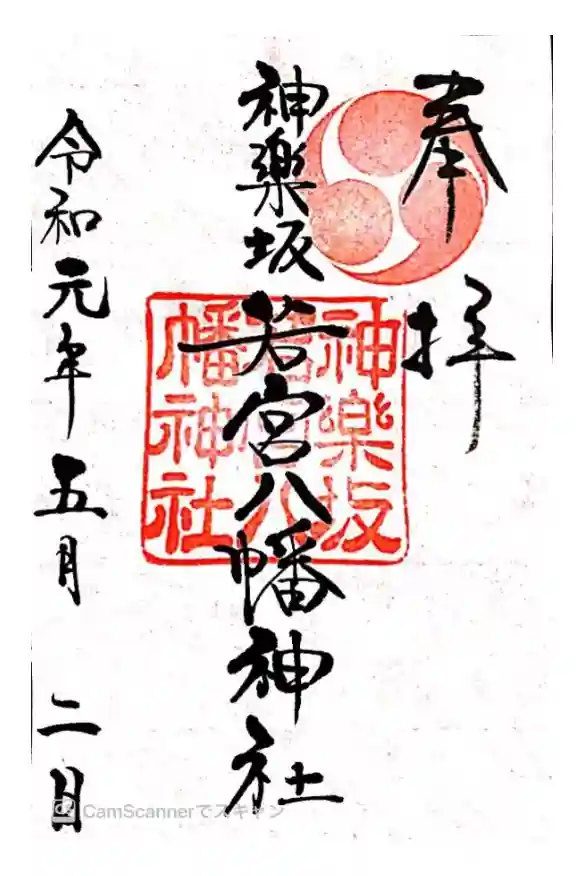 奉拝
神楽坂若宮八幡神社
神樂坂
若宮八
幡神社
令和元年五月二日
CamScannerでスキャン